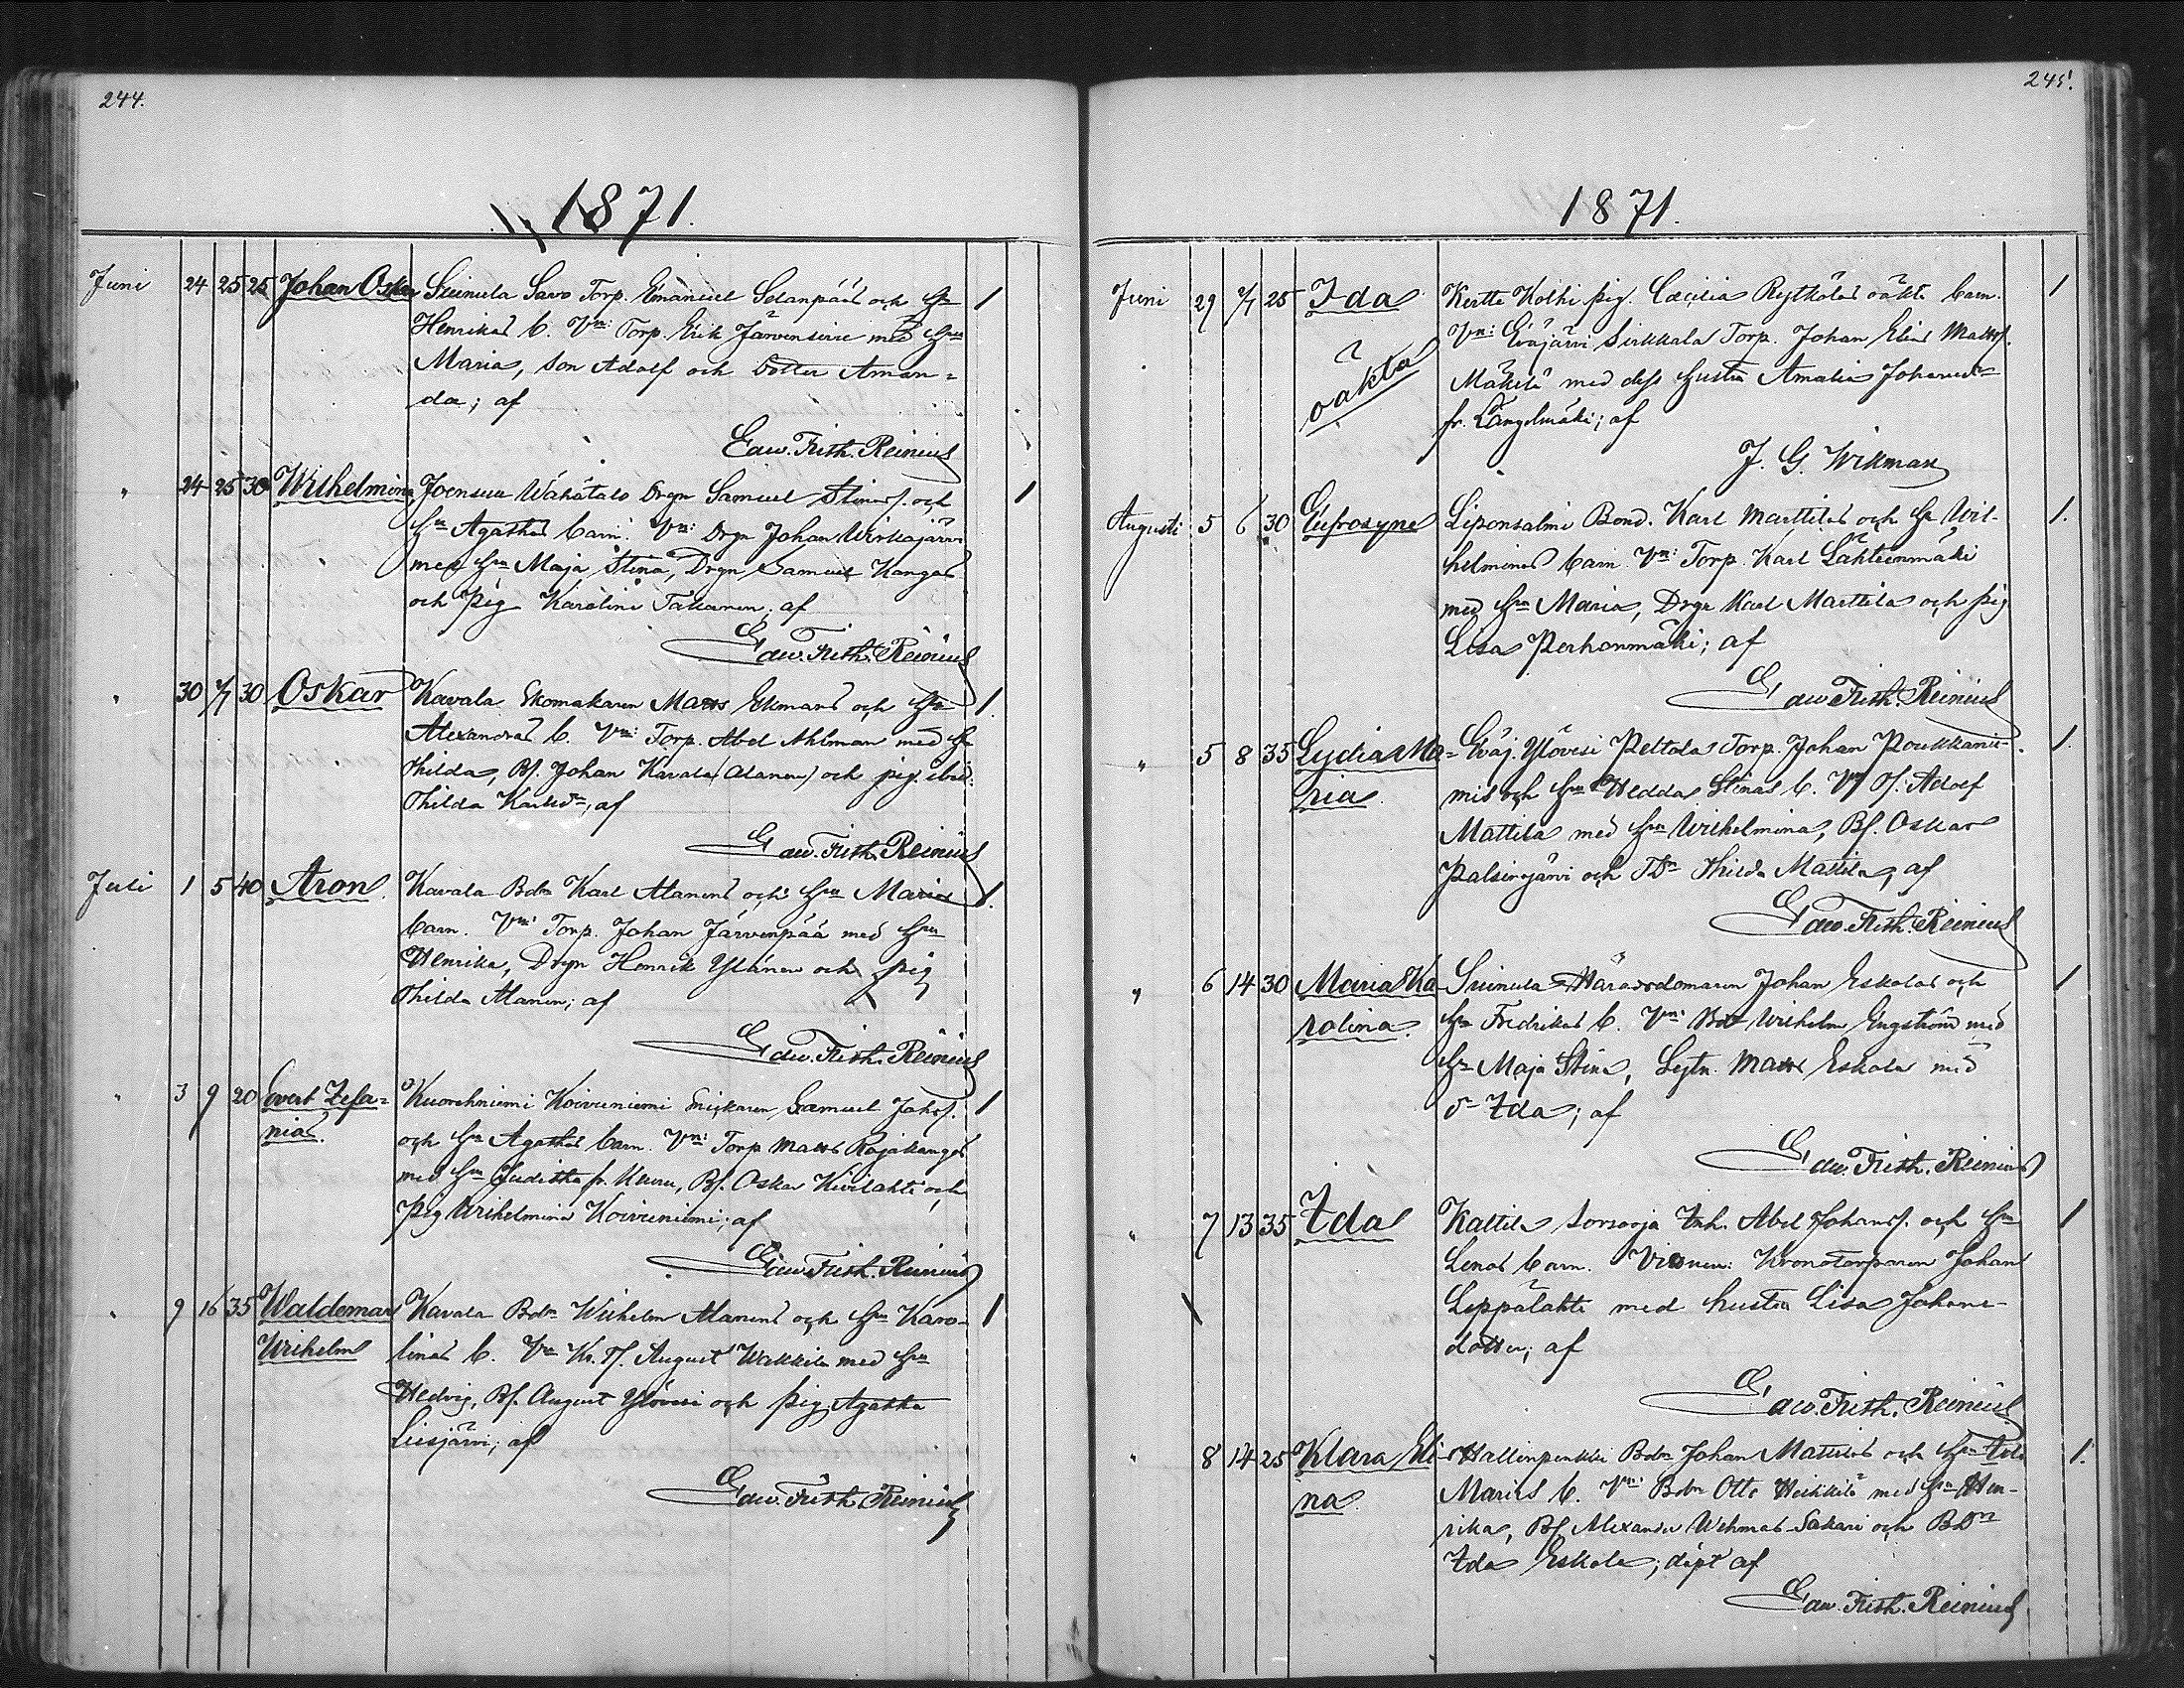 244.
1871.
Juni 24 25 25 Johan Oskar Suinula Savo Torp. Emanuel Selanpääs och Hu
Henrikas b. Vn: Torp. Erik Järvensivu med Hu
Maria, son Adolf och Dotter Aman=
da; af
Edw. Frith. Reinius
" 24 25 30 Wilhelmina Joensuu Wahätalo Drgn Samuel Stinas f. och
Hu Agathas barn. Vn: Drgn Johan Wirkajärvi
med Hu Maja Stina, Drgn Samuel Kangas
och Pig Karolina Takanen; af
Edw. Frith. Reinius
" 30 2/7 30 Oskar Kavala Skomakaren Matts Ekmans och Hu
Alexandras b. Vn: Torp. Abel Ahlman med Hu
Thilda, Bf. Johan Kavala (Alanen) och pig. ibid.
Thilda Karlsdr, af
Edw. Frith. Reinius
Juli 1 5 40 Aron. Kavala Bdn Karl Alanens och Hu Marias
barn. Vn: Torp. Johan Järvenpää med Hu
Henrika, Drgn Henrik Ylänen och pig
Thilda Alanen; af
Edw. Frith. Reinius
" 3 9 20 Evert Zefa=
nias. Kuorehniemi Koivuniemi Snickaren Samuel Johsf.
och Hu Agathas barn. Vn: Torp Matts Rajakangas
med Hu Juditha fr. Keuru, Bf. Oskar Kivilahti och
Pig Wilhelmina Koivuniemi; af
Edw. Frith. Reinius
" 9 16 35 Waldemar
Wilhelm Kavala Bdn Wilhelm Alanens och Hu Karo-
linas b. Vn Kr. Tf. August Wakkila med Hu
Hedvig, Bf. August Ylövesi och pig Agatha
Liesjärvi; af
Edw. Frith. Reinius
245.
1871.
Juni 29 2/7 25 Ida Kertte Kolhi pig. Cecilia Rytkölas oäkta barn.
oäkta Vn: Eväjärvi Sirkkala Torp. Johan Elias Mattsf.
Mäkelä med dess hustru Amalia Johansdr
fr. Längelmäki; af
J. G. Wikman
Augusti 5 6 30 Eufrosyne Liponsalmi Bond. Karl Marttilas och Hu Wil-
helminas barn. Vn: Torp. Karl Lähteenmäki
med Hu Maria, Drgn Karl Marttila och pig
Lisa Perhonmäki; af
Edw. Frith. Reinius
" 5 8 35 Lydia Ma-
ria. Eväj. Ylövesi Peltola Torp. Johan Poukkanie-
mis och Hu Hedda Stinas b. Vn Tf. Adolf
Mattila med Hu Wilhelmina, Bf. Oskar
Palsinajärvi och TDr Thilda Mattila, af
Edw. Frith. Reinius
" 6 14 30 Maria Ka-
rolina. Suinula Häradsdomaren Johan Eskolas och
Hu Fredrikas b. Vn: Bdr Wilhelm Engström med
Hu Maja Stina, Lejtn. Matts Eskola med
Dr Ida; af
Edw. Frith. Reinius
" 7 13 35 Ida Kaltila Sorsoja Inh. Abel Johansf. och Hu
Lenas barn. Vittnen: Kronotorparen Johan
Leppälahti med hustru Lisa Johans-
dotter; af
Edw. Frith. Reinius
" 8 14 25 Klara Eli-
na. Hallinpenkki Bdn Johan Mattilas och Hu Ida
Marias b. Vn: Bdn Otto Heikkilä med Hu Hen-
rika, Bf. Alexander Wehmas-Sakari och BDr
Ida Eskola; döpt af
Edw. Frith. Reinius